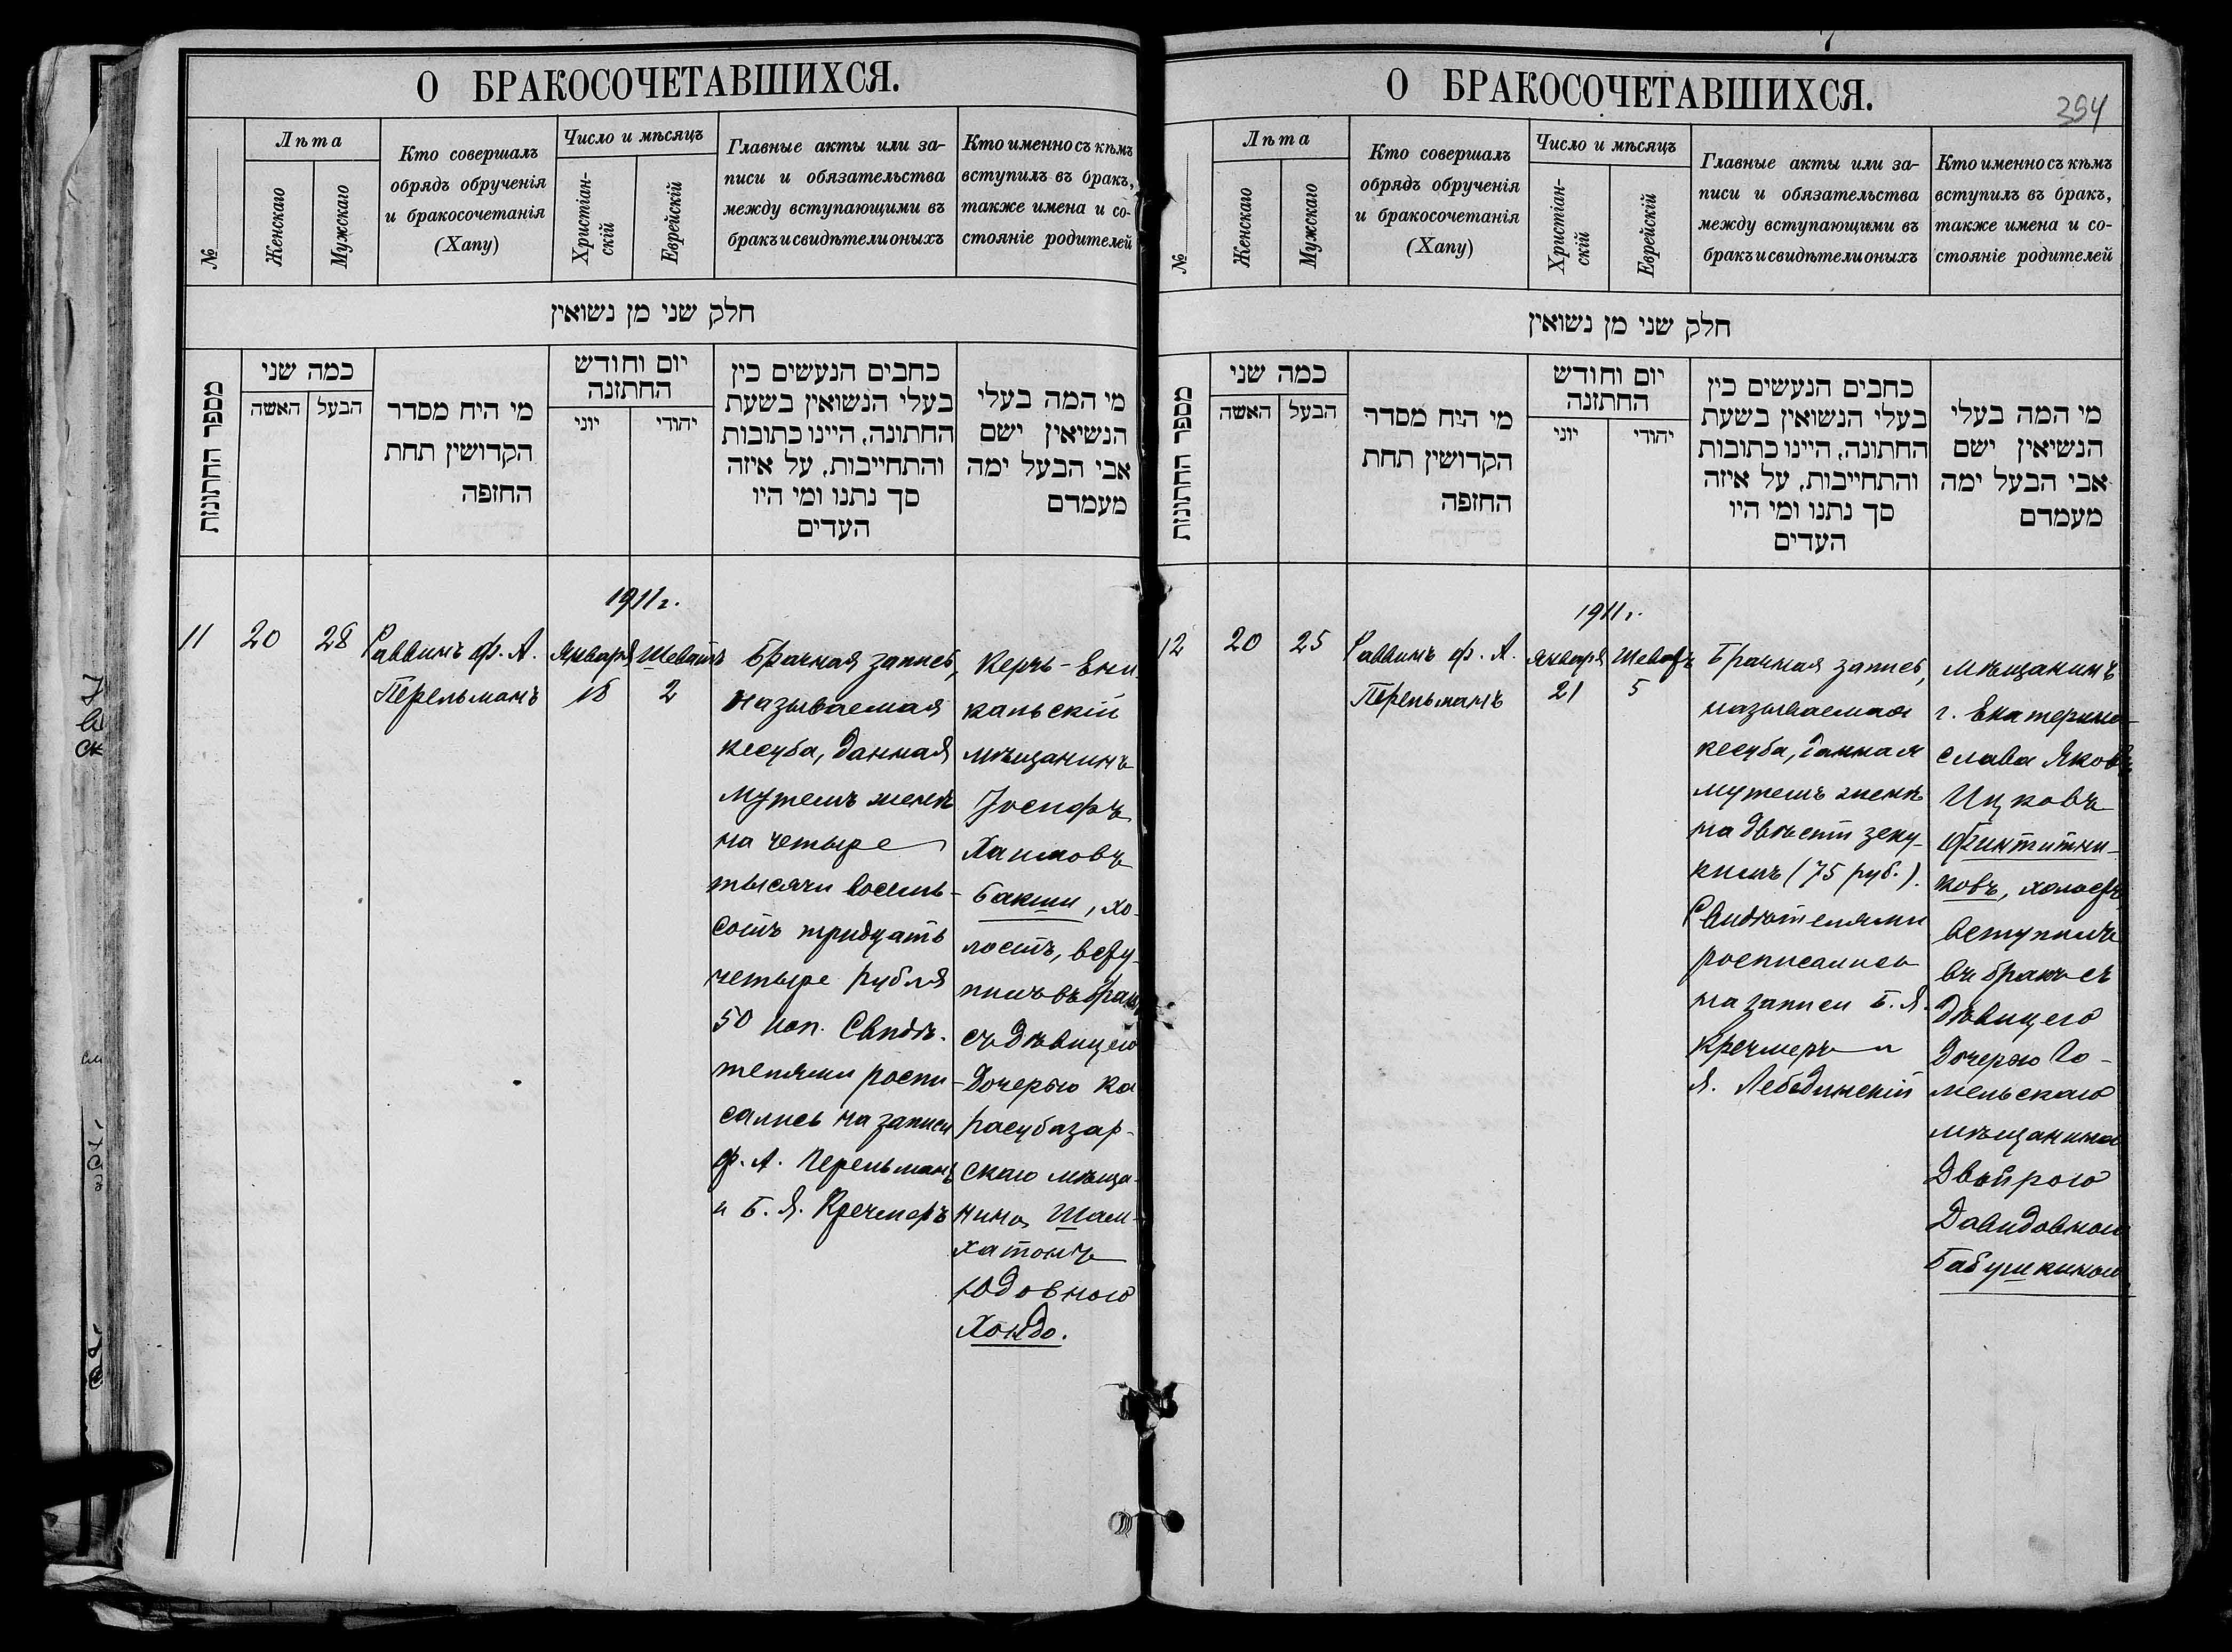 О БРАКОСОЧЕТАВШИХСЯ.
№
Лѣта
Женскаго
Мужскаго
Кто совершалъ
обрядъ обрученія
и бракосочетанія
(Хапу)
Число и мѣсяцъ
Христіан-
скій
Еврейскій
Главные акты или за-
писи и обязательства
между вступающими въ
бракъ и свидѣтели оныхъ
Кто именно съ кѣмъ
вступилъ въ бракъ,
также имена и со-
стояніе родителей
חלק שני מן נשואין
מספר החתונות
כמה שני
האשה
הבעל
מי היח מסדר
הקדושין תחת
החזפה
יום וחודש
החתזנה
יוני
יהודי
כחבים הנעשים כין
בעלי הנשואין בשעת
החתונה, היינו כתובות
והתחייבות, על איזה
סך נתנו ומי היו
העדים
מי המה בעלי
הנשיאין ישם
אבי הבעל ימה
מעמדם
11
20
28
Раввинъ Ф. А.
Перельманъ
1911 г.
Января
18
Шеватъ
2
Брачная запись,
называемая
кесуба, данная
мужемъ женѣ
на четыре
тысячи восемь-
сотъ тридцать
четыре рубля
50 коп. Свидѣ-
телями роспи-
сались на записи
Ф. А. Перельманъ
и Б. Я. Кречмеръ
Керчь-Ени-
кальскій
мѣщанинъ
Іосифъ
Хаимовъ
Бакши, хо-
лостъ, всту-
пилъ въ бракъ
съ дѣвицею
дочерью Ка
расубазар-
скаго мѣща-
нина Шам-
хатонъ
Юдовною
Хондо.
О БРАКОСОЧЕТАВШИХСЯ.
394
№
Лѣта
Женскаго
Мужскаго
Кто совершалъ
обрядъ обрученія
и бракосочетанія
(Хапу)
Число и мѣсяцъ
Христіан-
скій
Еврейскій
Главные акты или за-
писи и обязательства
между вступающими въ
бракъ и свидѣтели оныхъ
Кто именно съ кѣмъ
вступилъ въ бракъ,
также имена и со-
стояніе родителей
חלק שני מן נשואין
מספר החתונות
כמה שני
האשה
הבעל
מי היח מסדר
הקדושין תחת
החזפה
יום וחודש
החתזנה
יוני
יהודי
כחבים הנעשים כין
בעלי הנשואין בשעת
החתונה, היינו כתובות
והתחייבות, על איזה
סך נתנו ומי היו
העדים
מי המה בעלי
הנשיאין ישם
אבי הבעל ימה
מעמדם
12
20
25
Раввинъ Ф. А.
Перельманъ
1911 г.
Января
21
Шеватъ
5
Брачная запись,
называемая
кесуба, данная
мужемъ женѣ
на двѣсти зеку-
кимъ (75 руб.).
Свидѣтелями
росписались
на записи Б. Я.
Кречмеръ и
Я. Лебединскій
мѣщанинъ
г. Екатерино-
слава Яковъ
Ицковъ
Финтитни-
ковъ, холостъ,
вступилъ
въ бракъ съ
дѣвицею
дочерью Го-
мельскаго
мѣщанина
Двейрою
Давидовною
Бабушкиною.